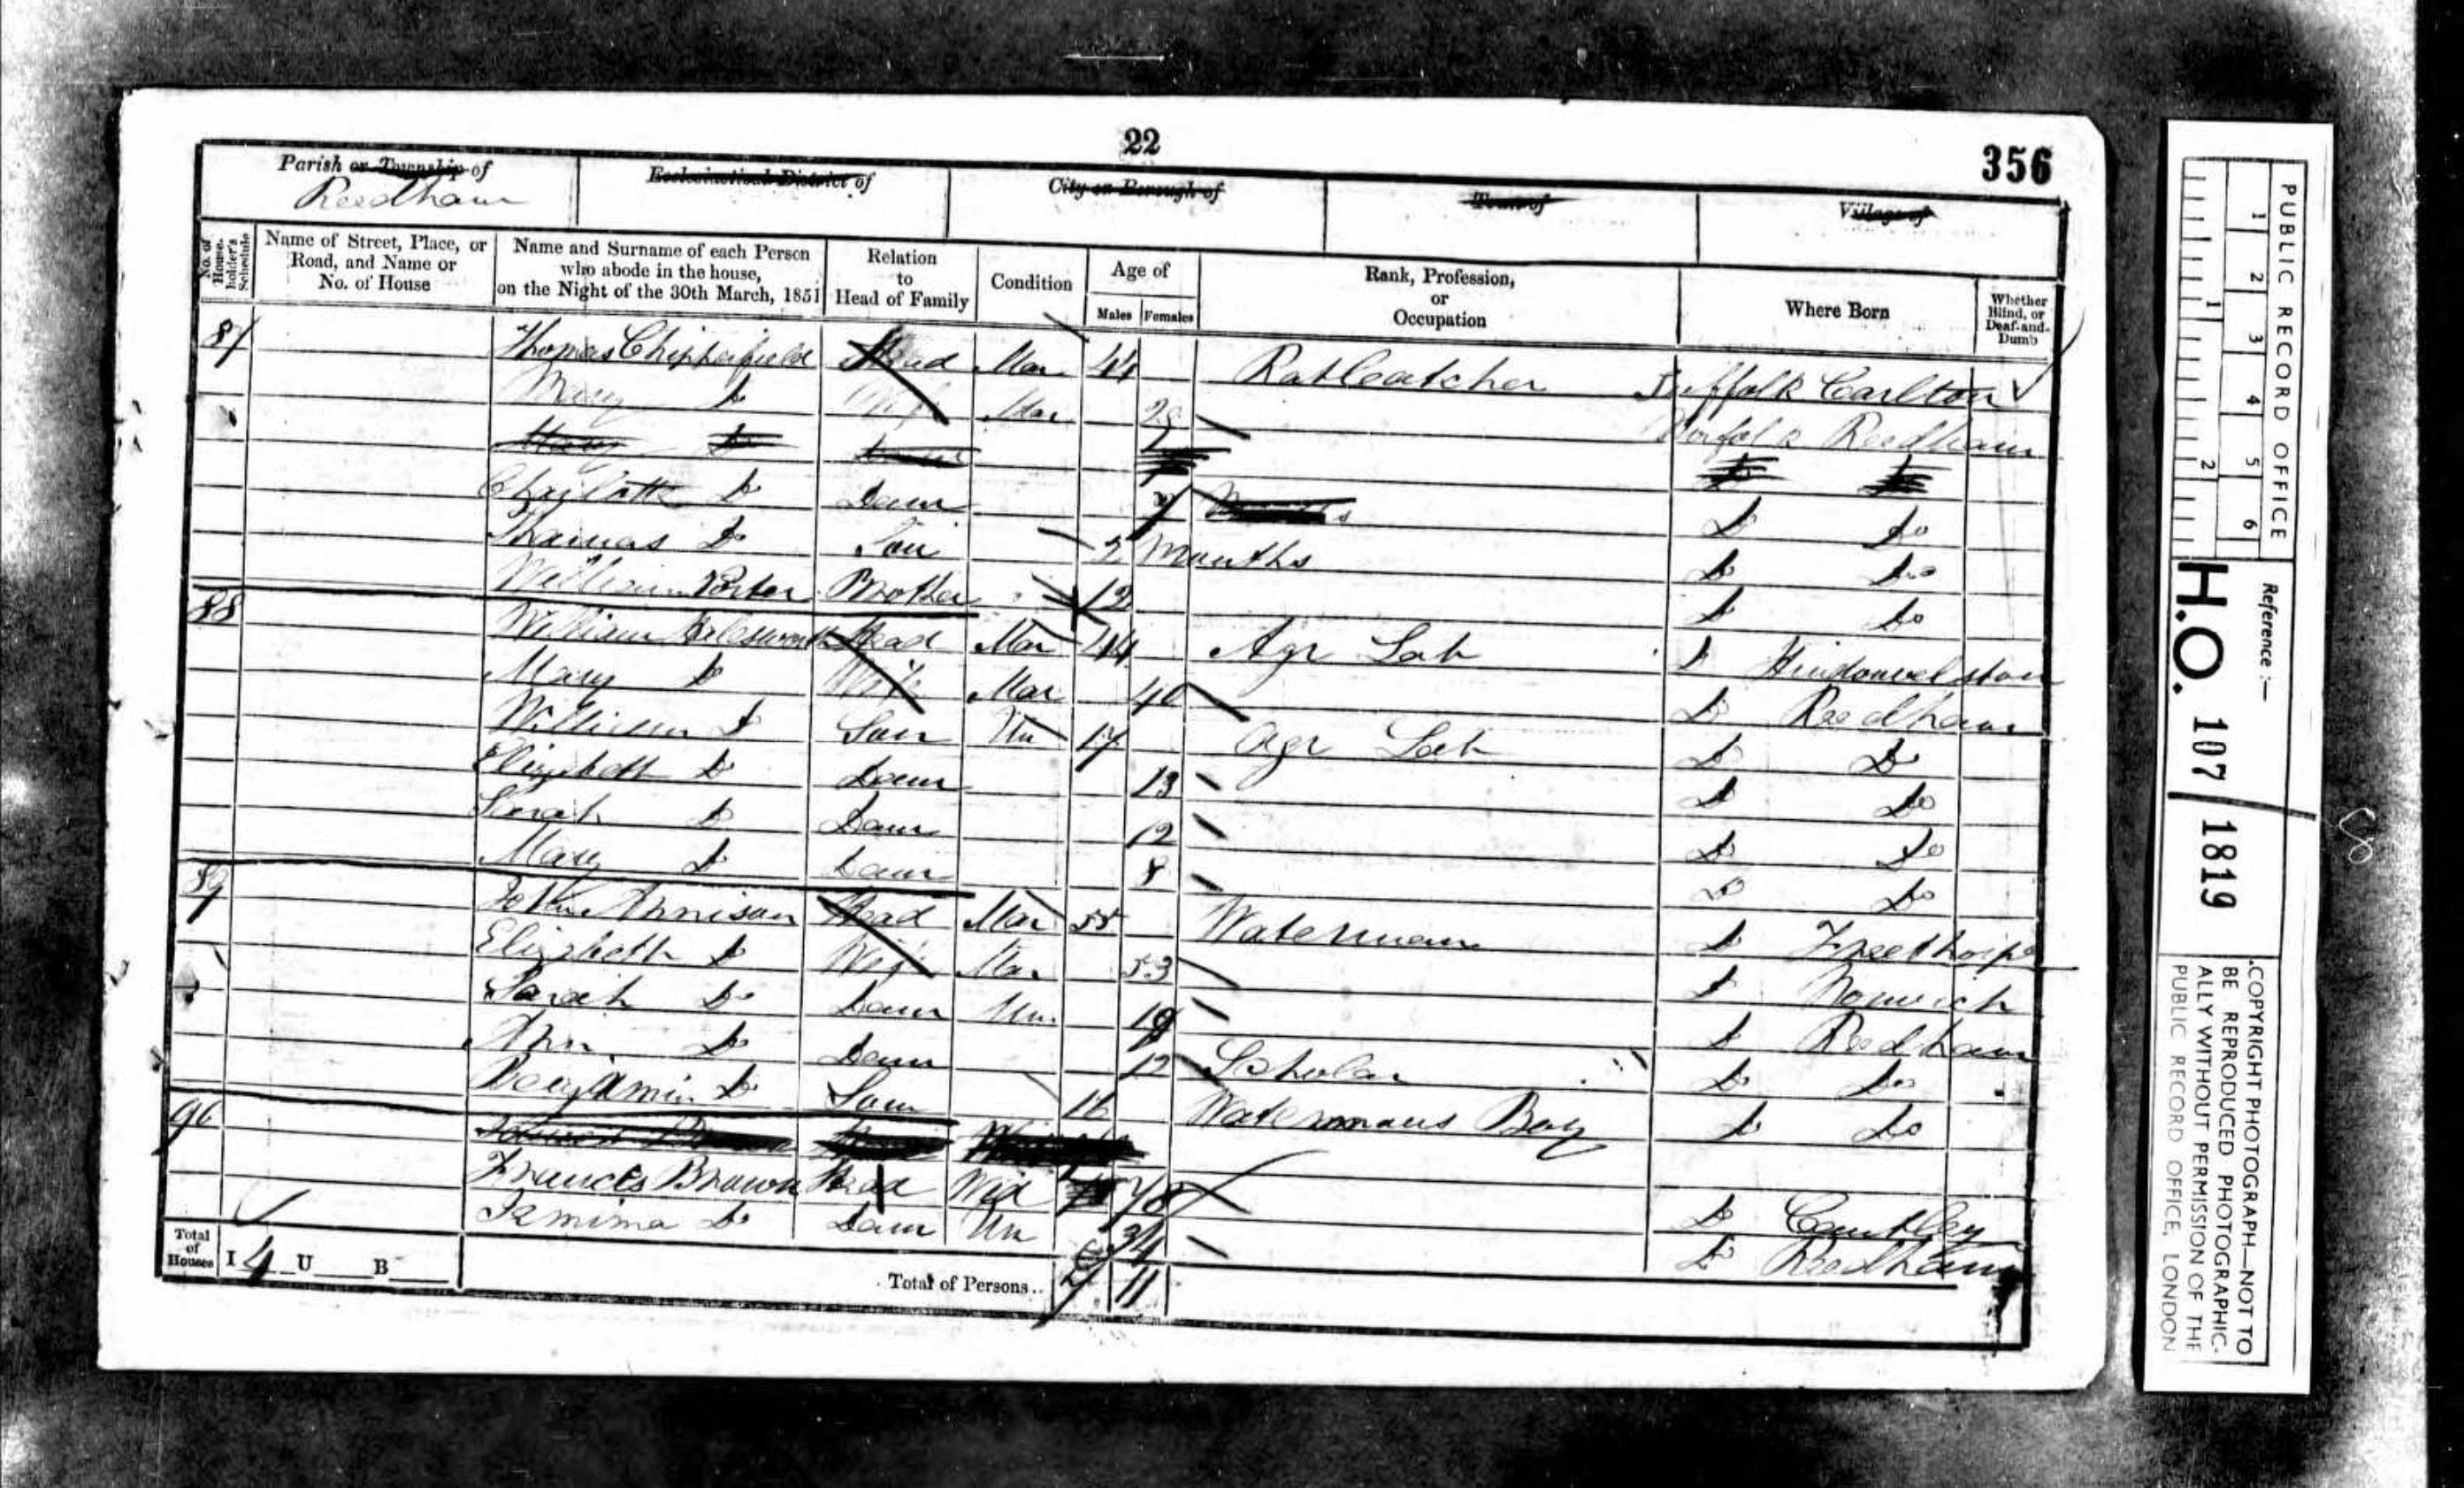 22
356
Parish or Township of
Reedham
Ecclesiastical District of
City or Borough of
Town of
Village of
No. of House-holder's Schedule
Name of Street, Place, or Road, and Name or No. of House
Name and Surname of each Person who abode in the house, on the Night of the 30th March, 1851
Relation to Head of Family
Condition
Age of
Males Females
Rank, Profession, or Occupation
Where Born
Whether Blind, or Deaf-and-Dumb
Thomas Chipperfield Head Mar 44 Ratcatcher Suffolk Carlton
Mary Do Wife Mar Norfolk Reedham
Do Do
Charlotte Do Daur Do Do
Thomas Do Son 2 Months Do Do
William Porter Brother 12 Do Do
88 William Head Mar 44 Agr Lab Do Hindonvelston
Mary Do Wife Mar 40 Do Reedham
William Do Son Un 17 Agr Lab Do Do
Elizabeth Do Daur 13 Do Do
Sarah Do Daur 12 Do Do
Mary Do Daur 8 Do Do
89 John Annison Head Mar 55 Waterman Do Freethorpe
Elizabeth Do Wife Mar 53 Do Norwich
Sarah Do Daur Un 19 Do Reedham
Ann Do Daur 12 Scholar Do Do
Benjamin Do Son 16 Watermans Boy Do Do
90
Frances Brown Head Wid 78 Do Cantley
Jemima Do Daur Un 34 Do Reedham
Total of Houses I 4 U B
Total of Persons.. 7 11
PUBLIC RECORD OFFICE
1 2 3 4 5 6
1 2
Reference :-
H.O. 107/1819
COPYRIGHT PHOTOGRAPH—NOT TO BE REPRODUCED PHOTOGRAPHIC-ALLY WITHOUT PERMISSION OF THE PUBLIC RECORD OFFICE, LONDON